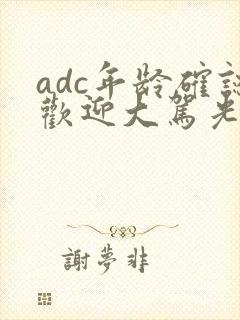 adc年龄確認
歡迎大駕光
謝夢非